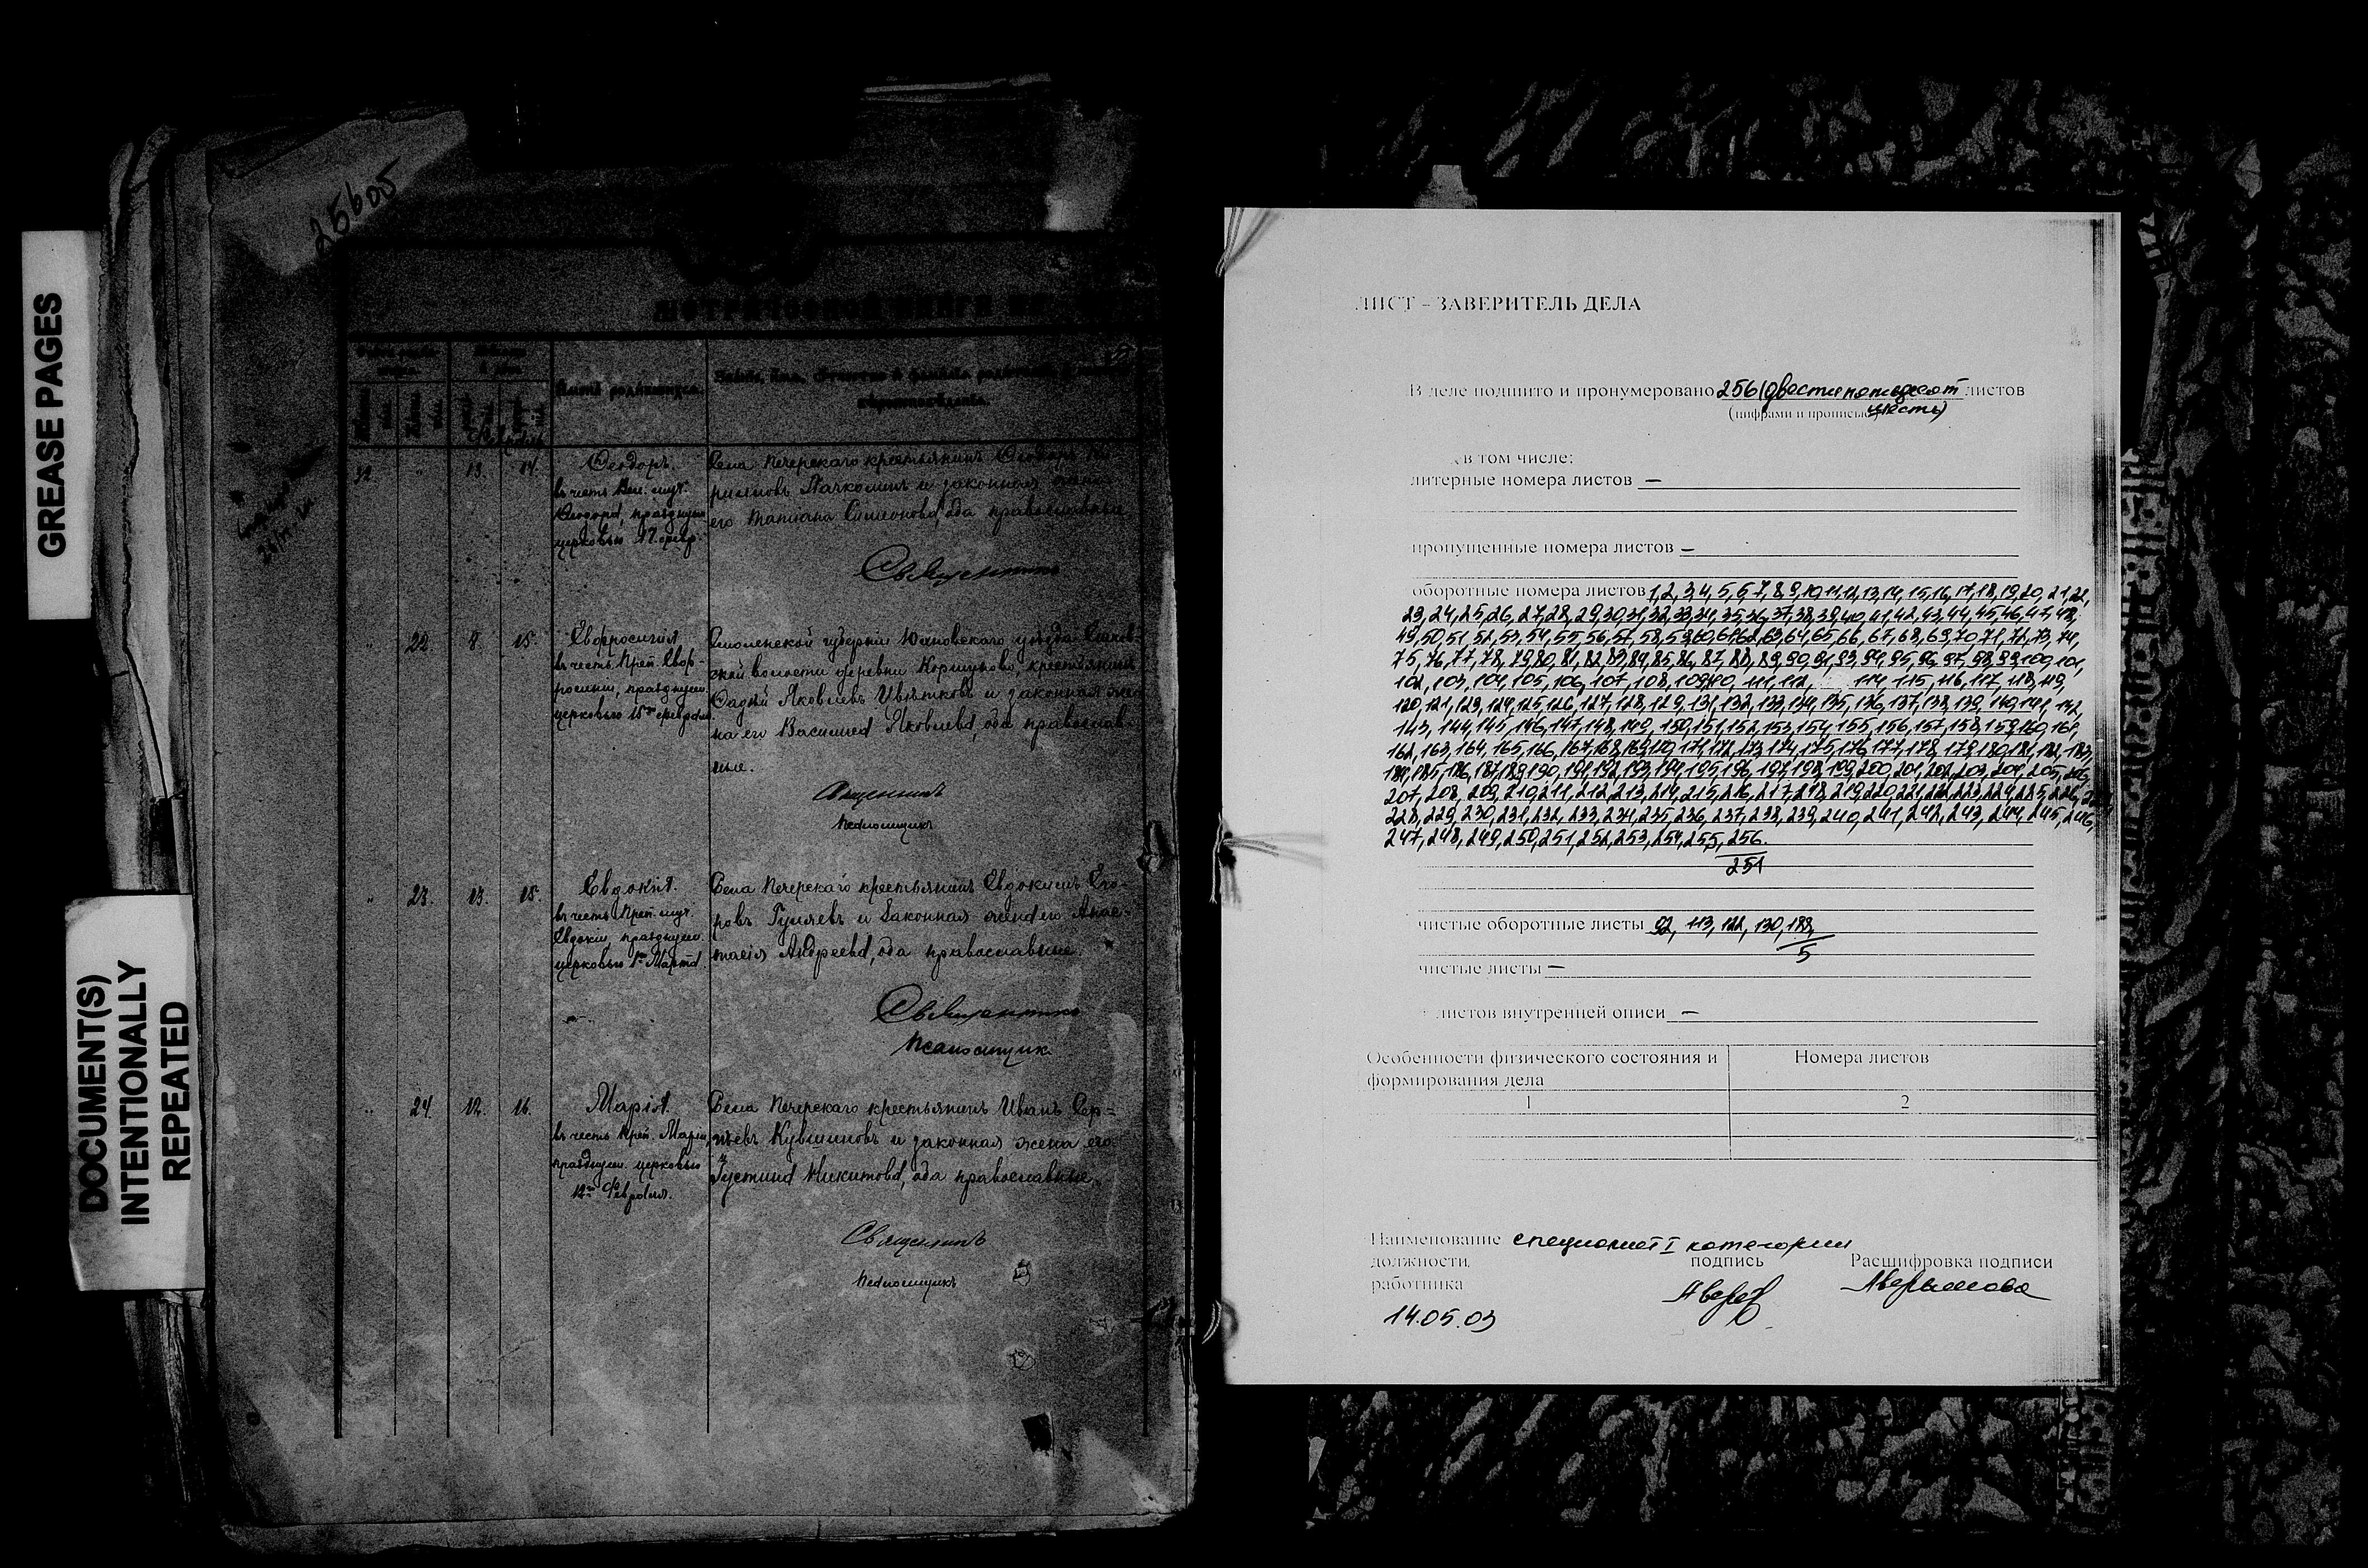 GREASE PAGES
DOCUMENT(S)
INTENTIONALLY
REPEATED
256об
Имя родившихся.
32. " 13. 14.
Ѳеодоръ.
въ честь Вел. муч.
Ѳеодора, празднуем.
церковью 17. февр.
Села Печерскаго крестьянинъ Ѳеодоръ
и законная жена
его Татиана Симеонова, оба православные
Священникъ
" 22. 8. 15.
Евфросинія
въ честь Преп. Евфро-
росиніи, празднуем.
церковью 15го февраля.
Смоленской губерніи Юхновскаго уѣзда
ской волости деревни Коршуново, крестьянинъ
Фадѣй Яковлевъ и законная же-
на его Василиса Яковлева, оба православ-
ные.
Священникъ
Псаломщикъ
" 23. 13. 15.
Евдокія.
въ честь Преп. муч.
Евдокіи, празднуем.
церковью 1го Марта.
Села Печерскаго крестьянинъ Евдокимъ Его-
ровъ Гуляевъ и законная жена его Анас-
тасія Андреева, оба православные.
Священникъ
Псаломщикъ
" 24. 12. 16.
Марія.
въ честь Преп. Маріи,
празднуем. церковью
12го Февраля.
Села Печерскаго крестьянинъ Иванъ Сер-
гѣевъ Кувшиновъ и законная жена его
Іустина Никитова, оба православные.
Священникъ
Псаломщикъ
ЛИСТ – ЗАВЕРИТЕЛЬ ДЕЛА
В деле подшито и пронумеровано 256 (двести пятьдесят листов
(цифрами и прописью) шесть)
в том числе:
литерные номера листов —
пропущенные номера листов —
оборотные номера листов 1, 2, 3, 4, 5, 6, 7, 8, 9, 10, 11, 12, 13, 14, 15, 16, 17, 18, 19, 20, 21, 22,
23, 24, 25, 26, 27, 28, 29, 30, 31, 32, 33, 34, 35, 36, 37, 38, 39, 40, 41, 42, 43, 44, 45, 46, 47, 48,
49, 50, 51, 52, 53, 54, 55, 56, 57, 58, 59, 60, 61, 62, 63, 64, 65, 66, 67, 68, 69, 70, 71, 72, 73, 74,
75, 76, 77, 78, 79, 80, 81, 82, 83, 84, 85, 86, 87, 88, 89, 90, 91, 93, 94, 95, 96, 97, 98, 99, 100, 101,
102, 103, 104, 105, 106, 107, 108, 109, 110, 111, 112, 114, 115, 116, 117, 118, 119,
120, 121, 123, 124, 125, 126, 127, 128, 129, 131, 132, 133, 134, 135, 136, 137, 138, 139, 140, 141, 142,
143, 144, 145, 146, 147, 148, 149, 150, 151, 152, 153, 154, 155, 156, 157, 158, 159, 160, 161,
162, 163, 164, 165, 166, 167, 168, 169, 170, 171, 172, 173, 174, 175, 176, 177, 178, 179, 180, 181, 182, 183,
184, 185, 186, 187, 189, 190, 191, 192, 193, 194, 195, 196, 197, 198, 199, 200, 201, 202, 203, 204, 205, 206,
207, 208, 209, 210, 211, 212, 213, 214, 215, 216, 217, 218, 219, 220, 221, 222, 223, 224, 225, 226, 227,
228, 229, 230, 231, 232, 233, 234, 235, 236, 237, 238, 239, 240, 241, 242, 243, 244, 245, 246,
247, 248, 249, 250, 251, 252, 253, 254, 255, 256.
251
чистые оборотные листы 92, 113, 122, 130, 188,
5
чистые листы —
листов внутренней описи —
Особенности физического состояния и формирования дела
Номера листов
1
2
Наименование специалист I категории
должности,
подпись
Расшифровка подписи
работника
Аверьянова
14.05.03